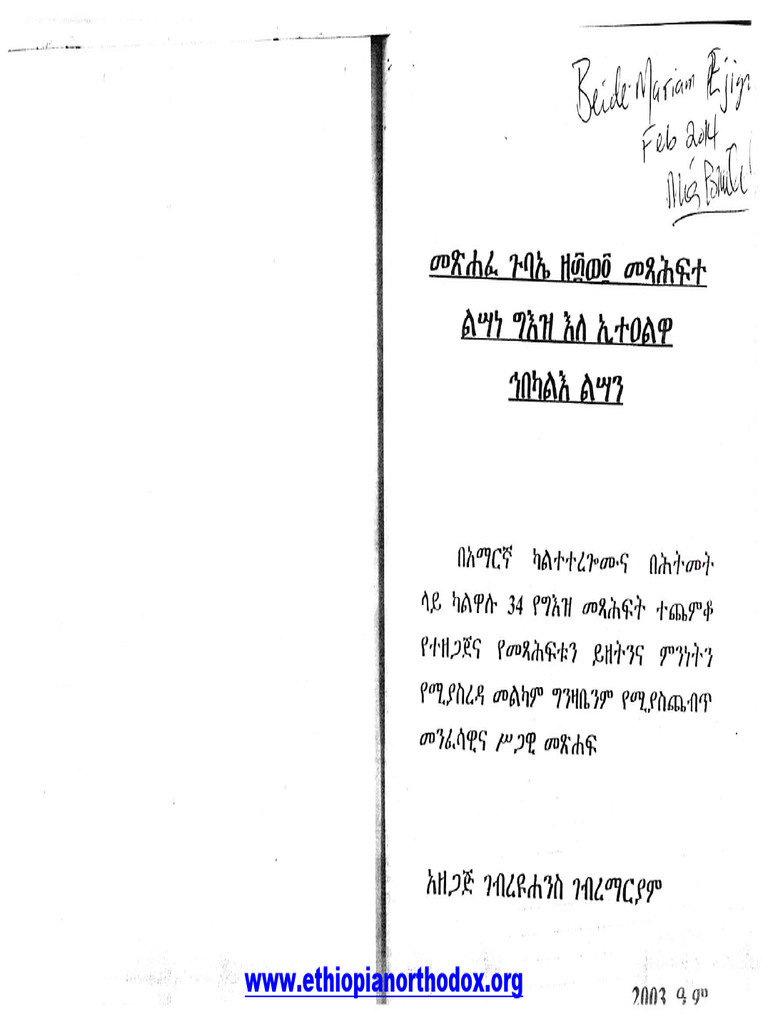 Beide-Mariam Ejigu
Feb 2014
መጽሐፈ ጉባኤ ዘ፴ወ፬ መጻሕፍተ
ልሣነ ግእዝ እለ ኢተዐልዋ
ኀበካልእ ልሣን
በአማርኛ ካልተተረጐሙና በሕትመት
ላይ ካልዋሉ 34 የግእዝ መጻሕፍት ተጨምቆ
የተዘጋጀና የመጻሕፍቱን ይዘትንና ምንነትን
የሚያስረዳ መልካም ግንዛቤንም የሚያስጨብጥ
መንፈሳዊና ሥጋዊ መጽሐፍ
አዘጋጅ ገብረዩሐንስ ገብረማርያም
2003 ዓ ም
www.ethiopianorthodox.org